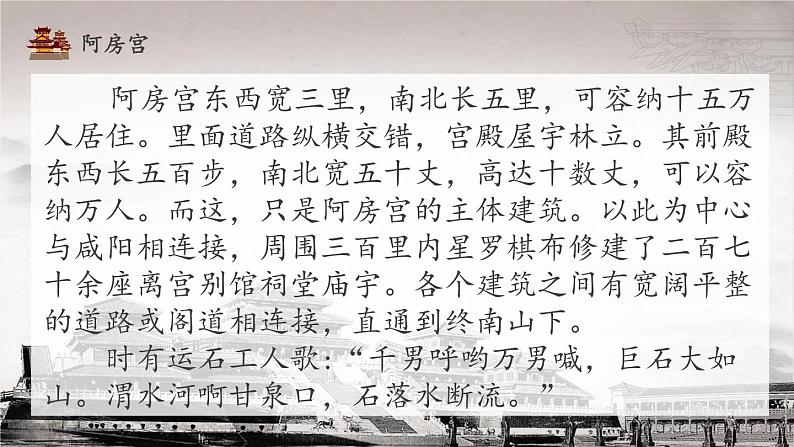 阿房宫
阿房宫东西宽三里，南北长五里，可容纳十五万
人居住。里面道路纵横交错，宫殿屋宇林立。其前殿
东西长五百步，南北宽五十丈，高达十数丈，可以容
纳万人。而这，只是阿房宫的主体建筑。以此为中心
与咸阳相连接，周围三百里内星罗棋布修建了二百七
十余座离宫别馆祠堂庙宇。各个建筑之间有宽阔平整
的道路或阁道相连接，直通到终南山下。
时有运石工人歌：“千男呼哟万男喊，巨石大如
山。渭水河啊甘泉口，石落水断流。”